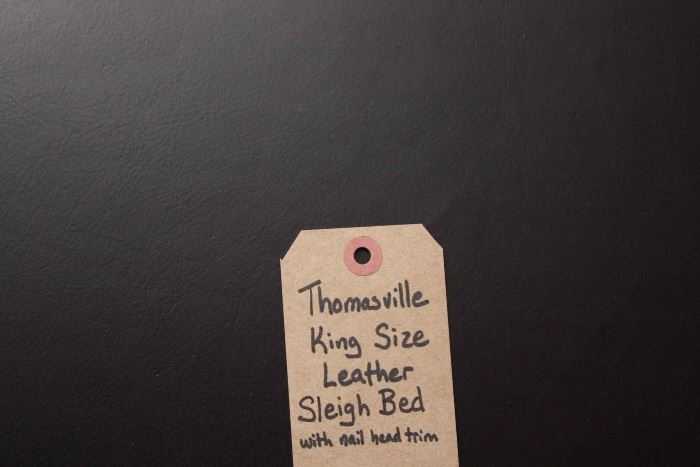 Thomasville
King Size
Leather
Sleigh Bed
with nail head trim